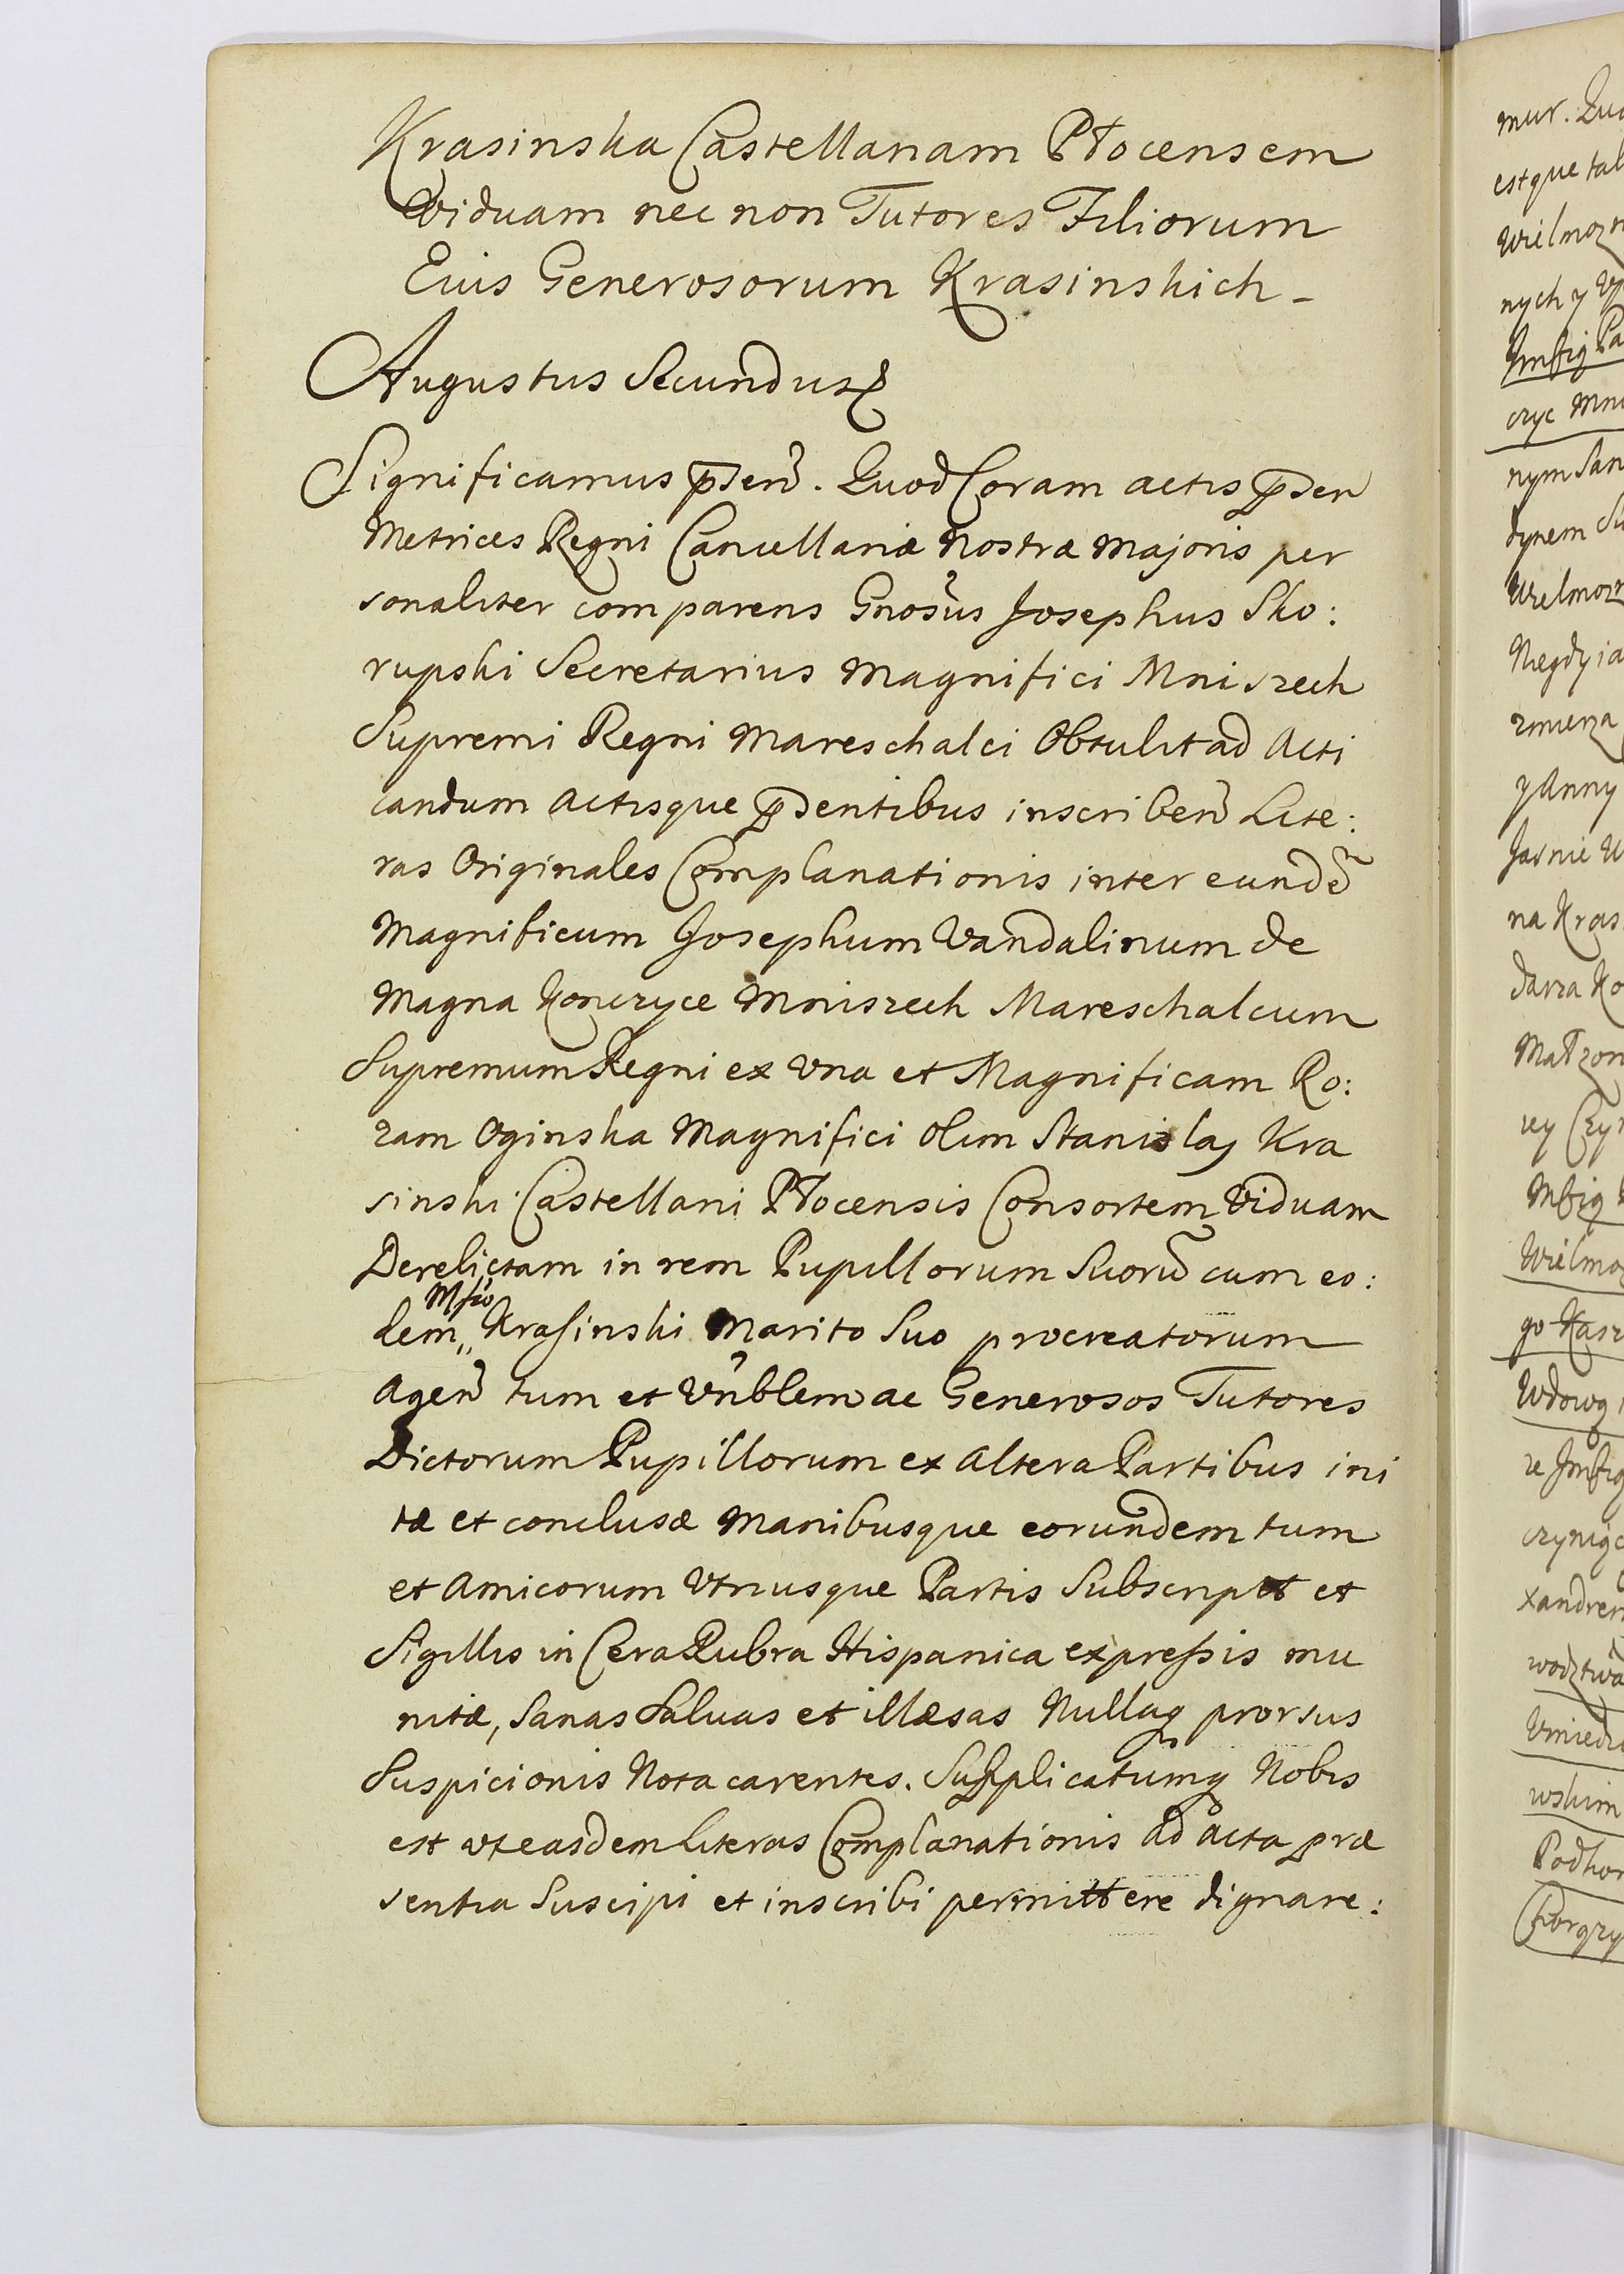 Krasinska Castellanam Płocensem
Viduam nec non Tutores Filiorum
Eius Generosorum Krasinskich -
Augustus Secundus
Significamus p̄sen̄. Quod Coram actis p̄sen
Metrices Regni Cancellariæ Nostræ Majoris per
sonaliter comparens Gnosus Josephus Sko:
rupski Secretarius Magnifici Mniszech
Supremi Regni Mareschalci Obtulit ad Acti
candum actisque p̄sentibus inscriben̄ Lite:
ras Originales Complanationis inter eundē
Magnificum Josephum Vandalinum de
Magna Konczyce Mniszech Mareschalcum
Supremum Regni ex Vna et Magnificam Ro:
zam Oginska Magnifici olim Stanislaj Kra
sinski Castellani Płocensis Consortem Viduam
Derelictam in rem Pupillorum Suorū cum eo:
Mfio
dem,, Krasinski Marito Suo procreatorum
Agen̄ tum et Vnblem ac Generosos Tutores
Dictorum Pupillorum ex Altera Partibus ini
tæ et conclusæ Manibusque eorundem tum
et Amicorum Vtriusque Partis Subscript et
Sigillis in Cera Rubra Hispanica expressis mu
nitæ, Sanas Saluas et illæsas Nullaq prorsus
Suspicionis Nota carentes. Supplicatumq Nobis
est vt easdem Literas Complanationis ad acta præ
sentia Suscipi et inscribi permittere dignare:
mur.
estque
nych y
czyc
nym
dynem
y Anny
Jasnie
na Kras
go
wskim